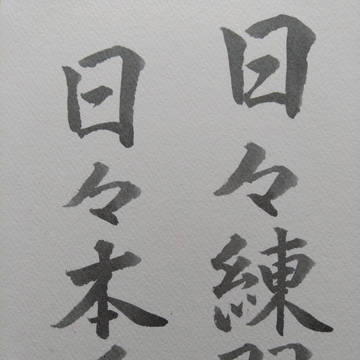 日々練
日々本